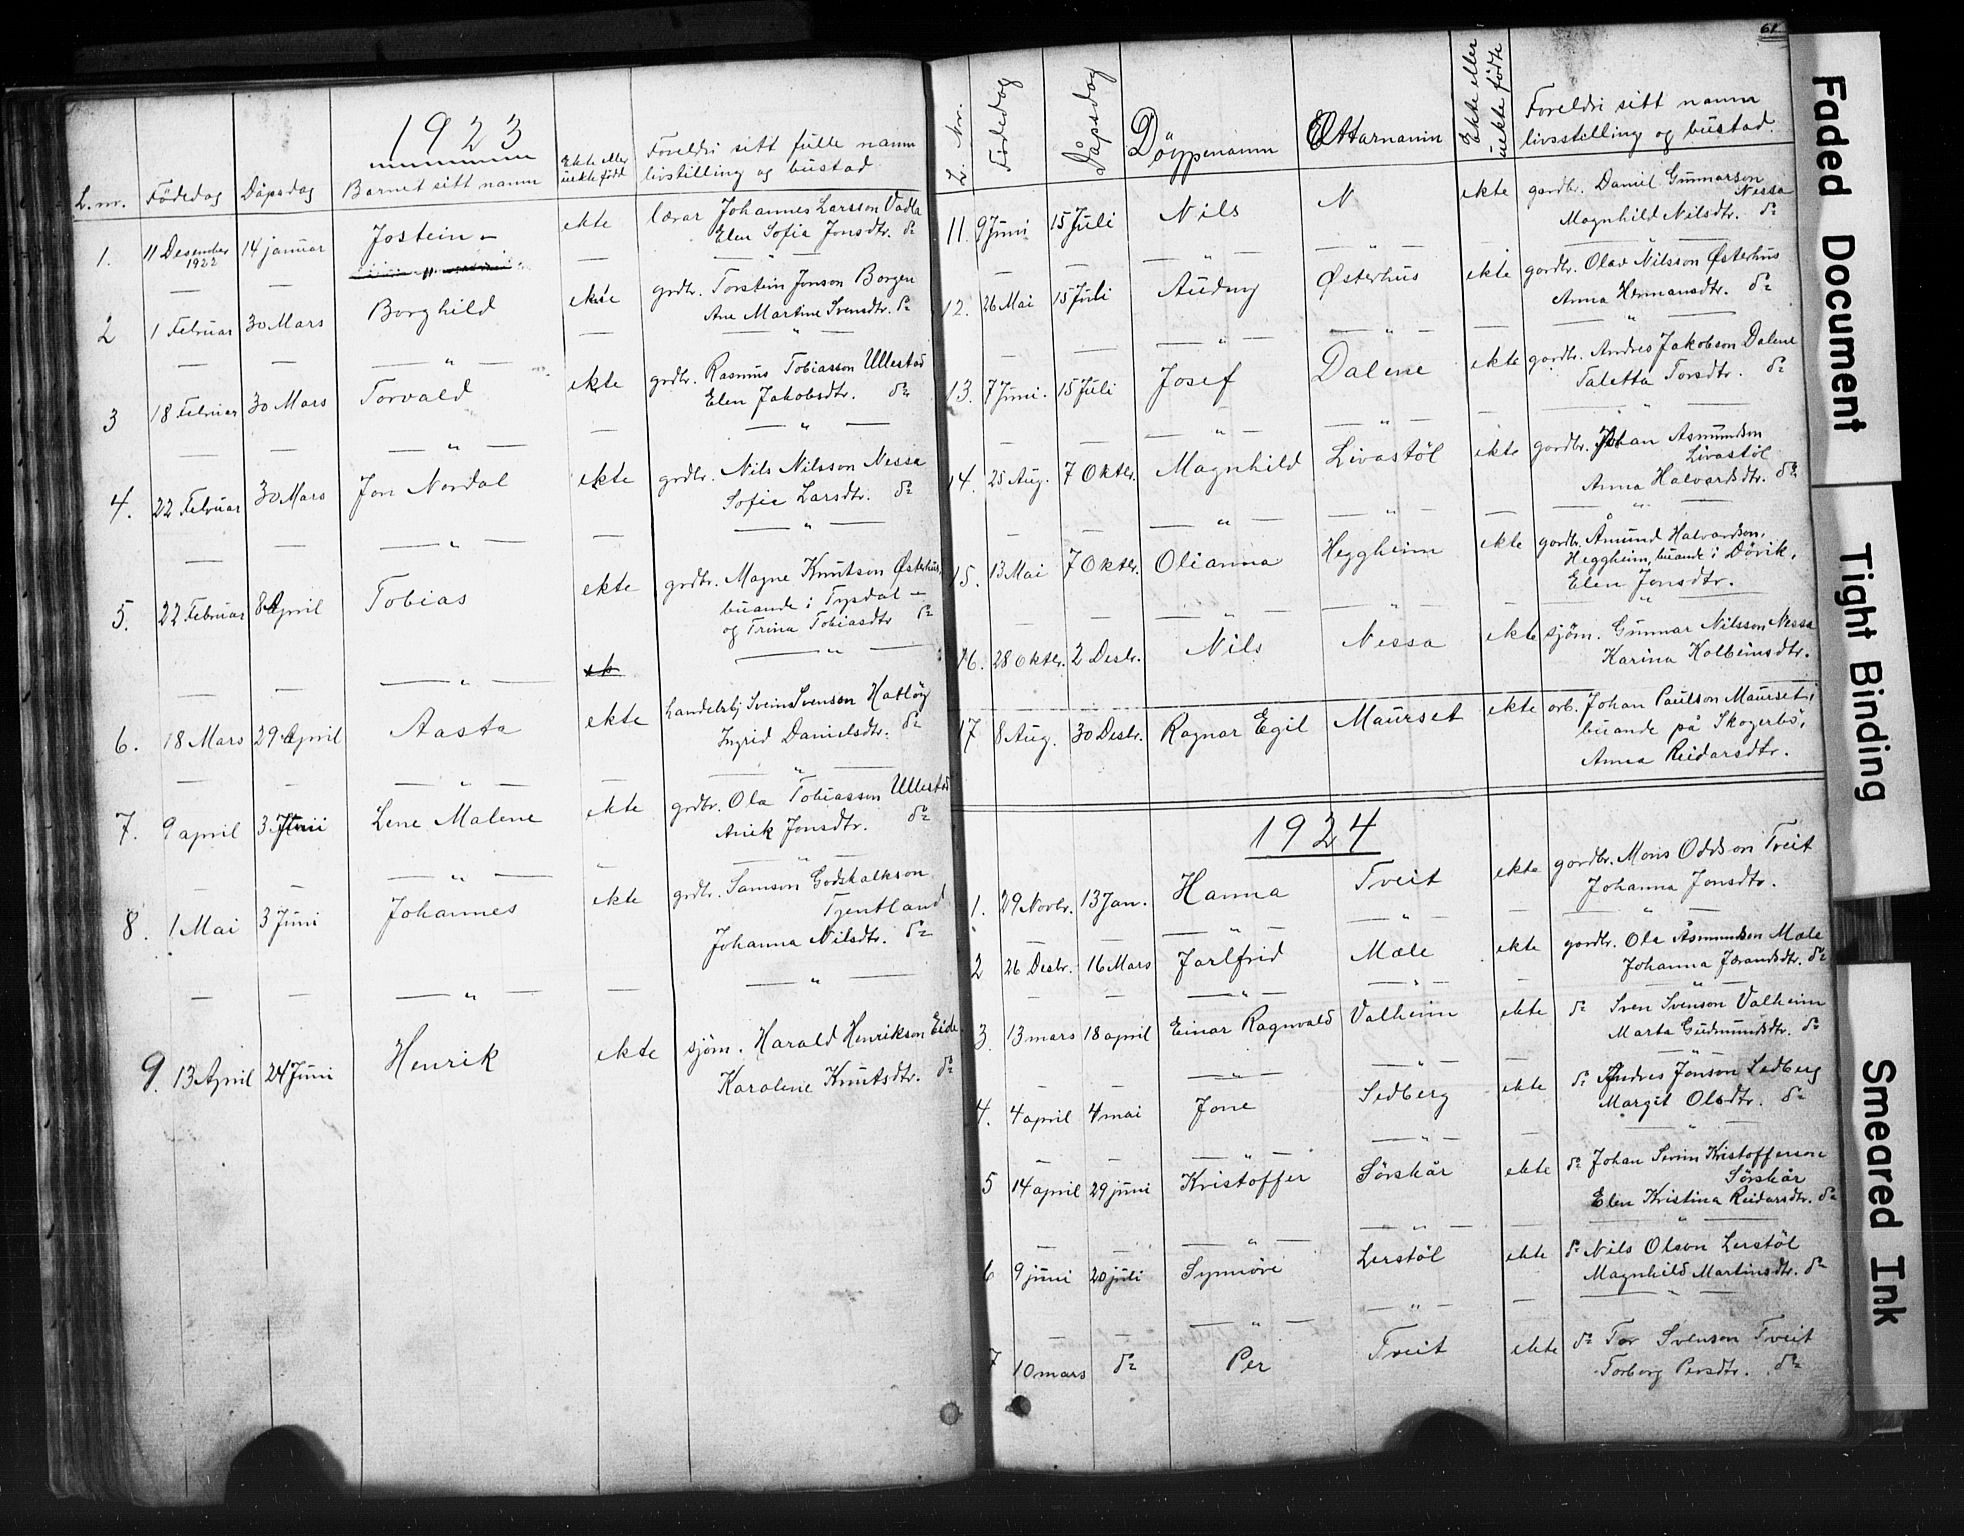 1923
L. nr. Födedag Dåpsdag Barnet sitt namn Ekte eller uekte född Foreldri sitt fulle namn
livstilling og bustad
1. 11 Desember 1922 14 januar Jostein – ekte lærar Johannes Larsson Vadla
Elen Sofia Jonsdtr. do
2 1 Februar 30 Mars Borghild ekte grdbr. Torstein Jonson Borgen
Ane Martine Svensdtr. do
3 18 Februar 30 Mars Torvald ekte grdbr. Rasmus Tobiasson Ullestad
Elen Jakobsdtr. do
4. 22 Februar 30 Mars Jon Nordal ekte grdbr. Nils Nilsson Nessa
Sofie Larsdtr. do
5. 22 Februar 8 April Tobias ekte grdbr. Magne Knutson Østerhus,
buande i Tysdal –
og Trina Tobiasdtr do
6. 18 Mars 29 April Aasta ekte handelsbj Svein Svenson Hatlöy
Ingrid Danielsdtr. do
7. 9 april 3 Juni Lene Malene ekte grdbr. Ola Tobiasson Ullestad
Anik Jonsdtr. do
8. 1 Mai 3 Juni Johannes ekte grdbr. Samson Godskalkson
Tjentland
Johanna Nilsdtr. do
9. 13 April 24 Juni Henrik ekte sjöm. Harald Henrikson Eide
Karolene Knutsdtr. do
61
L. Nr. Födedag Dåpsdag Döypenamn Ættarnamn Ekte eller uekte födte Foreldri sitt namn
livsstilling og bustad.
11. 9 Juni 15 Juli Nils N ekte gardbr. Daniel Gunnarson
Nessa
Magnhild Nilsdtr. do
12. 26 Mai 15 Juli Audny Østerhus ekte gardbr. Olav Nilsson Østerhus
Anna Hermansdtr. do
13. 7 Juni. 15 Juli Josef Dalene ekte gardbr. Andres Jakobson Dalene
Taletta Torsdtr. do
14. 25 Aug. 7 Oktbr. Magnhild Livastöl ekte gardbr. Johan Asmundson
Livastöl
Anna Halvardsdtr. do
15. 13 Mai 7 Oktbr. Olianna Heggheim ekte gardbr. Åmund Halvardson
Heggheim, buande i Dörvik,
Elen Jonsdtr.
16. 28 Oktbr. 2 Desbr. Nils Nessa ekte sjöm. Gunnar Nilsson Nessa
Karina Kolbeinsdtr.
17 8 Aug. 30 Desbr. Ragnar Egil Maurset ekte arb. Johan Paulson Maurset,
buande på Skogerbö,
Anna Reidarsdtr.
1924
1. 29 Novbr. 13 Jan. Hanna Tveit ekte gardbr. Mons Oddson Tveit
Johanna Jonsdtr.
2 26 Desbr. 16 Mars Jarlfrid Mæle ekte gardbr. Ola Åsmundson Mæle
Johanna Jørandsdtr. do
3. 13 mars 18 april Einar Ragnvald Valheim ekte do Sven Svenson Valheim
Marta Gudmundsdtr. do
4. 4 april 4 mai Jone Sedberg ekte do Andres Jonson Sedberg
Margit Olsdtr. do
5 14 april 29 juni Kristoffer Sörskår ekte do Johan Severin Kristofferson
Sörskår
Elen Kristina Reidarsdtr. do
6 9 juni 20 juli Synnöve Lerstöl ekte do Nils Olson Lerstöl
Magnhild Martinsdtr. do
7 10 mars do Per Tveit ekte do Tor Svenson Tveit
Torborg Persdtr. do
Faded Document
Tight Binding
Smeared Ink